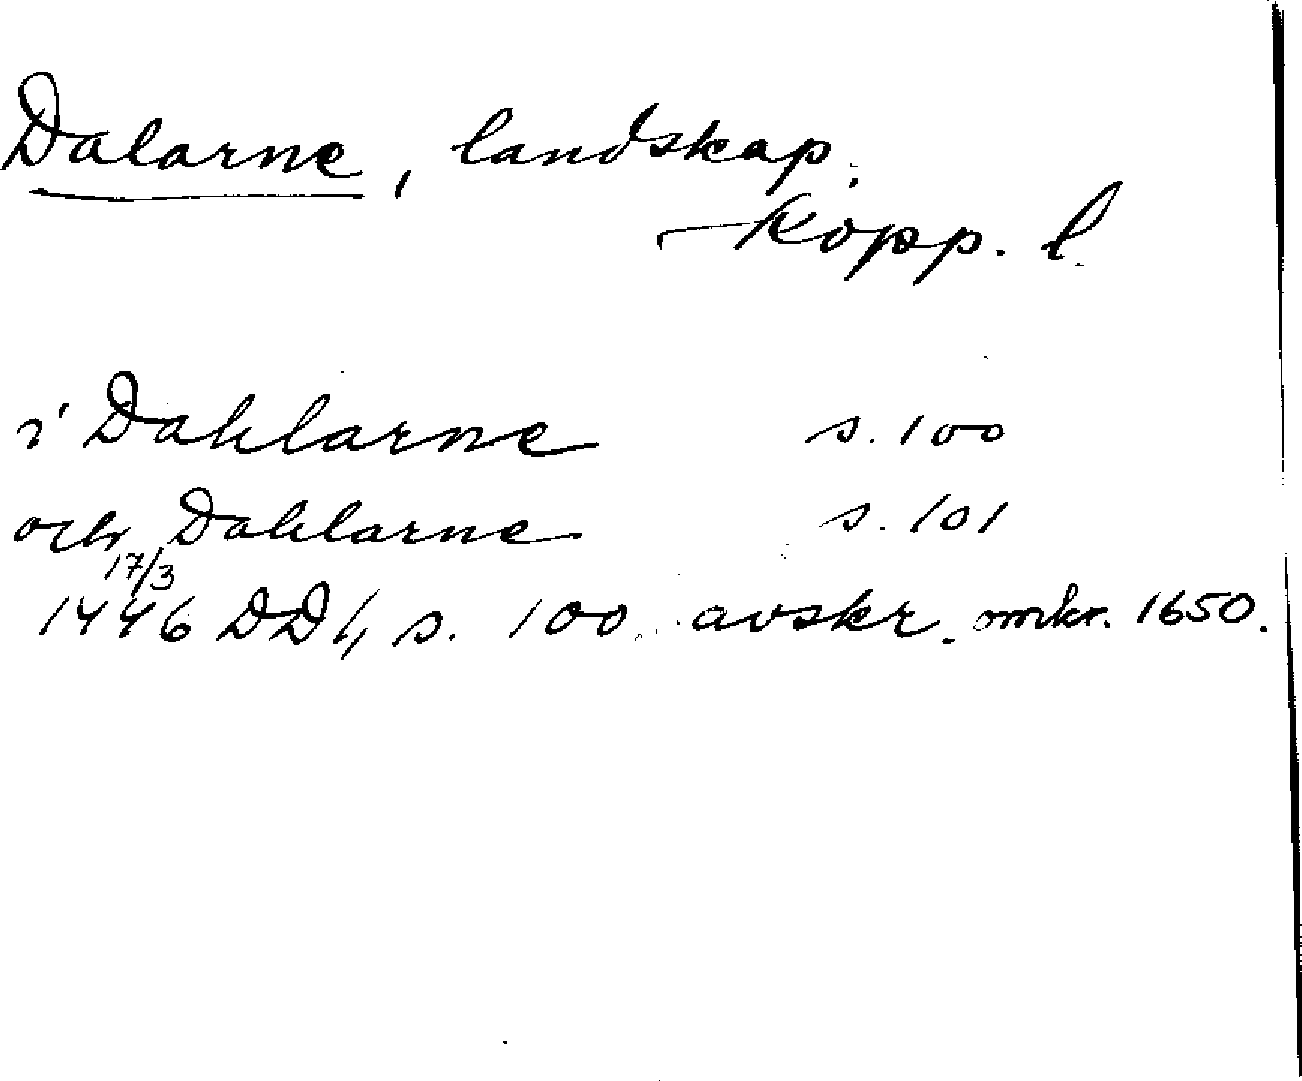 Dalarne, landskap.
Kopp. l.
i Dahlarne s. 100
och Dahlarne s. 101
17/3
1446 DD 1, s. 100 avskr. omkr. 1650.